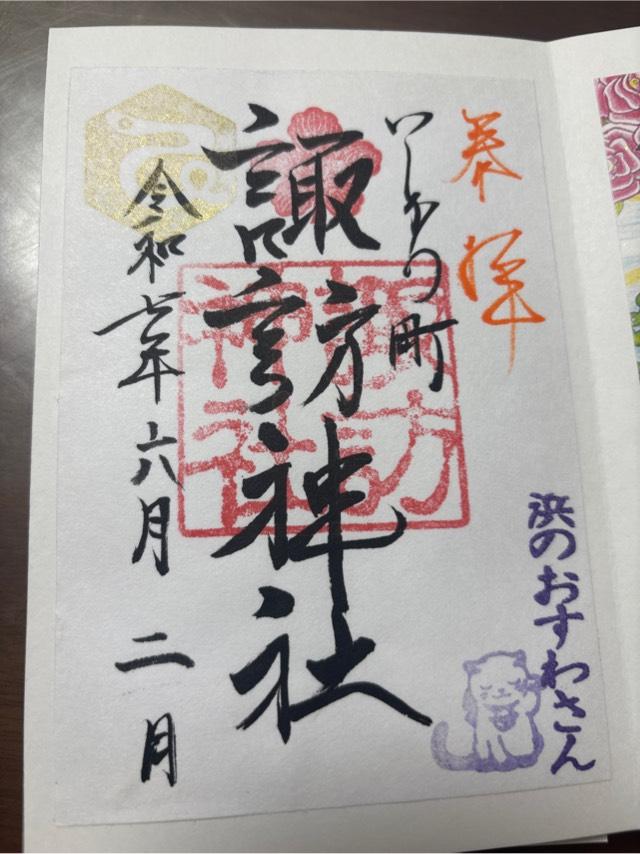 奉拝
いしおり町
諏訪神社
諏訪
神社
令和七年六月二月
浜のおすわさん